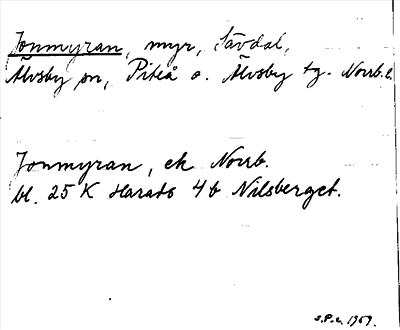 Jonmyran, myr, Sävdal,
Älvsby sn, Piteå o. Älvsby tg. Norrb. l.
Jonmyran, ek Norrb.
bl. 25 K Harads 4 b Nilsberget.
S.P.c. 1969.